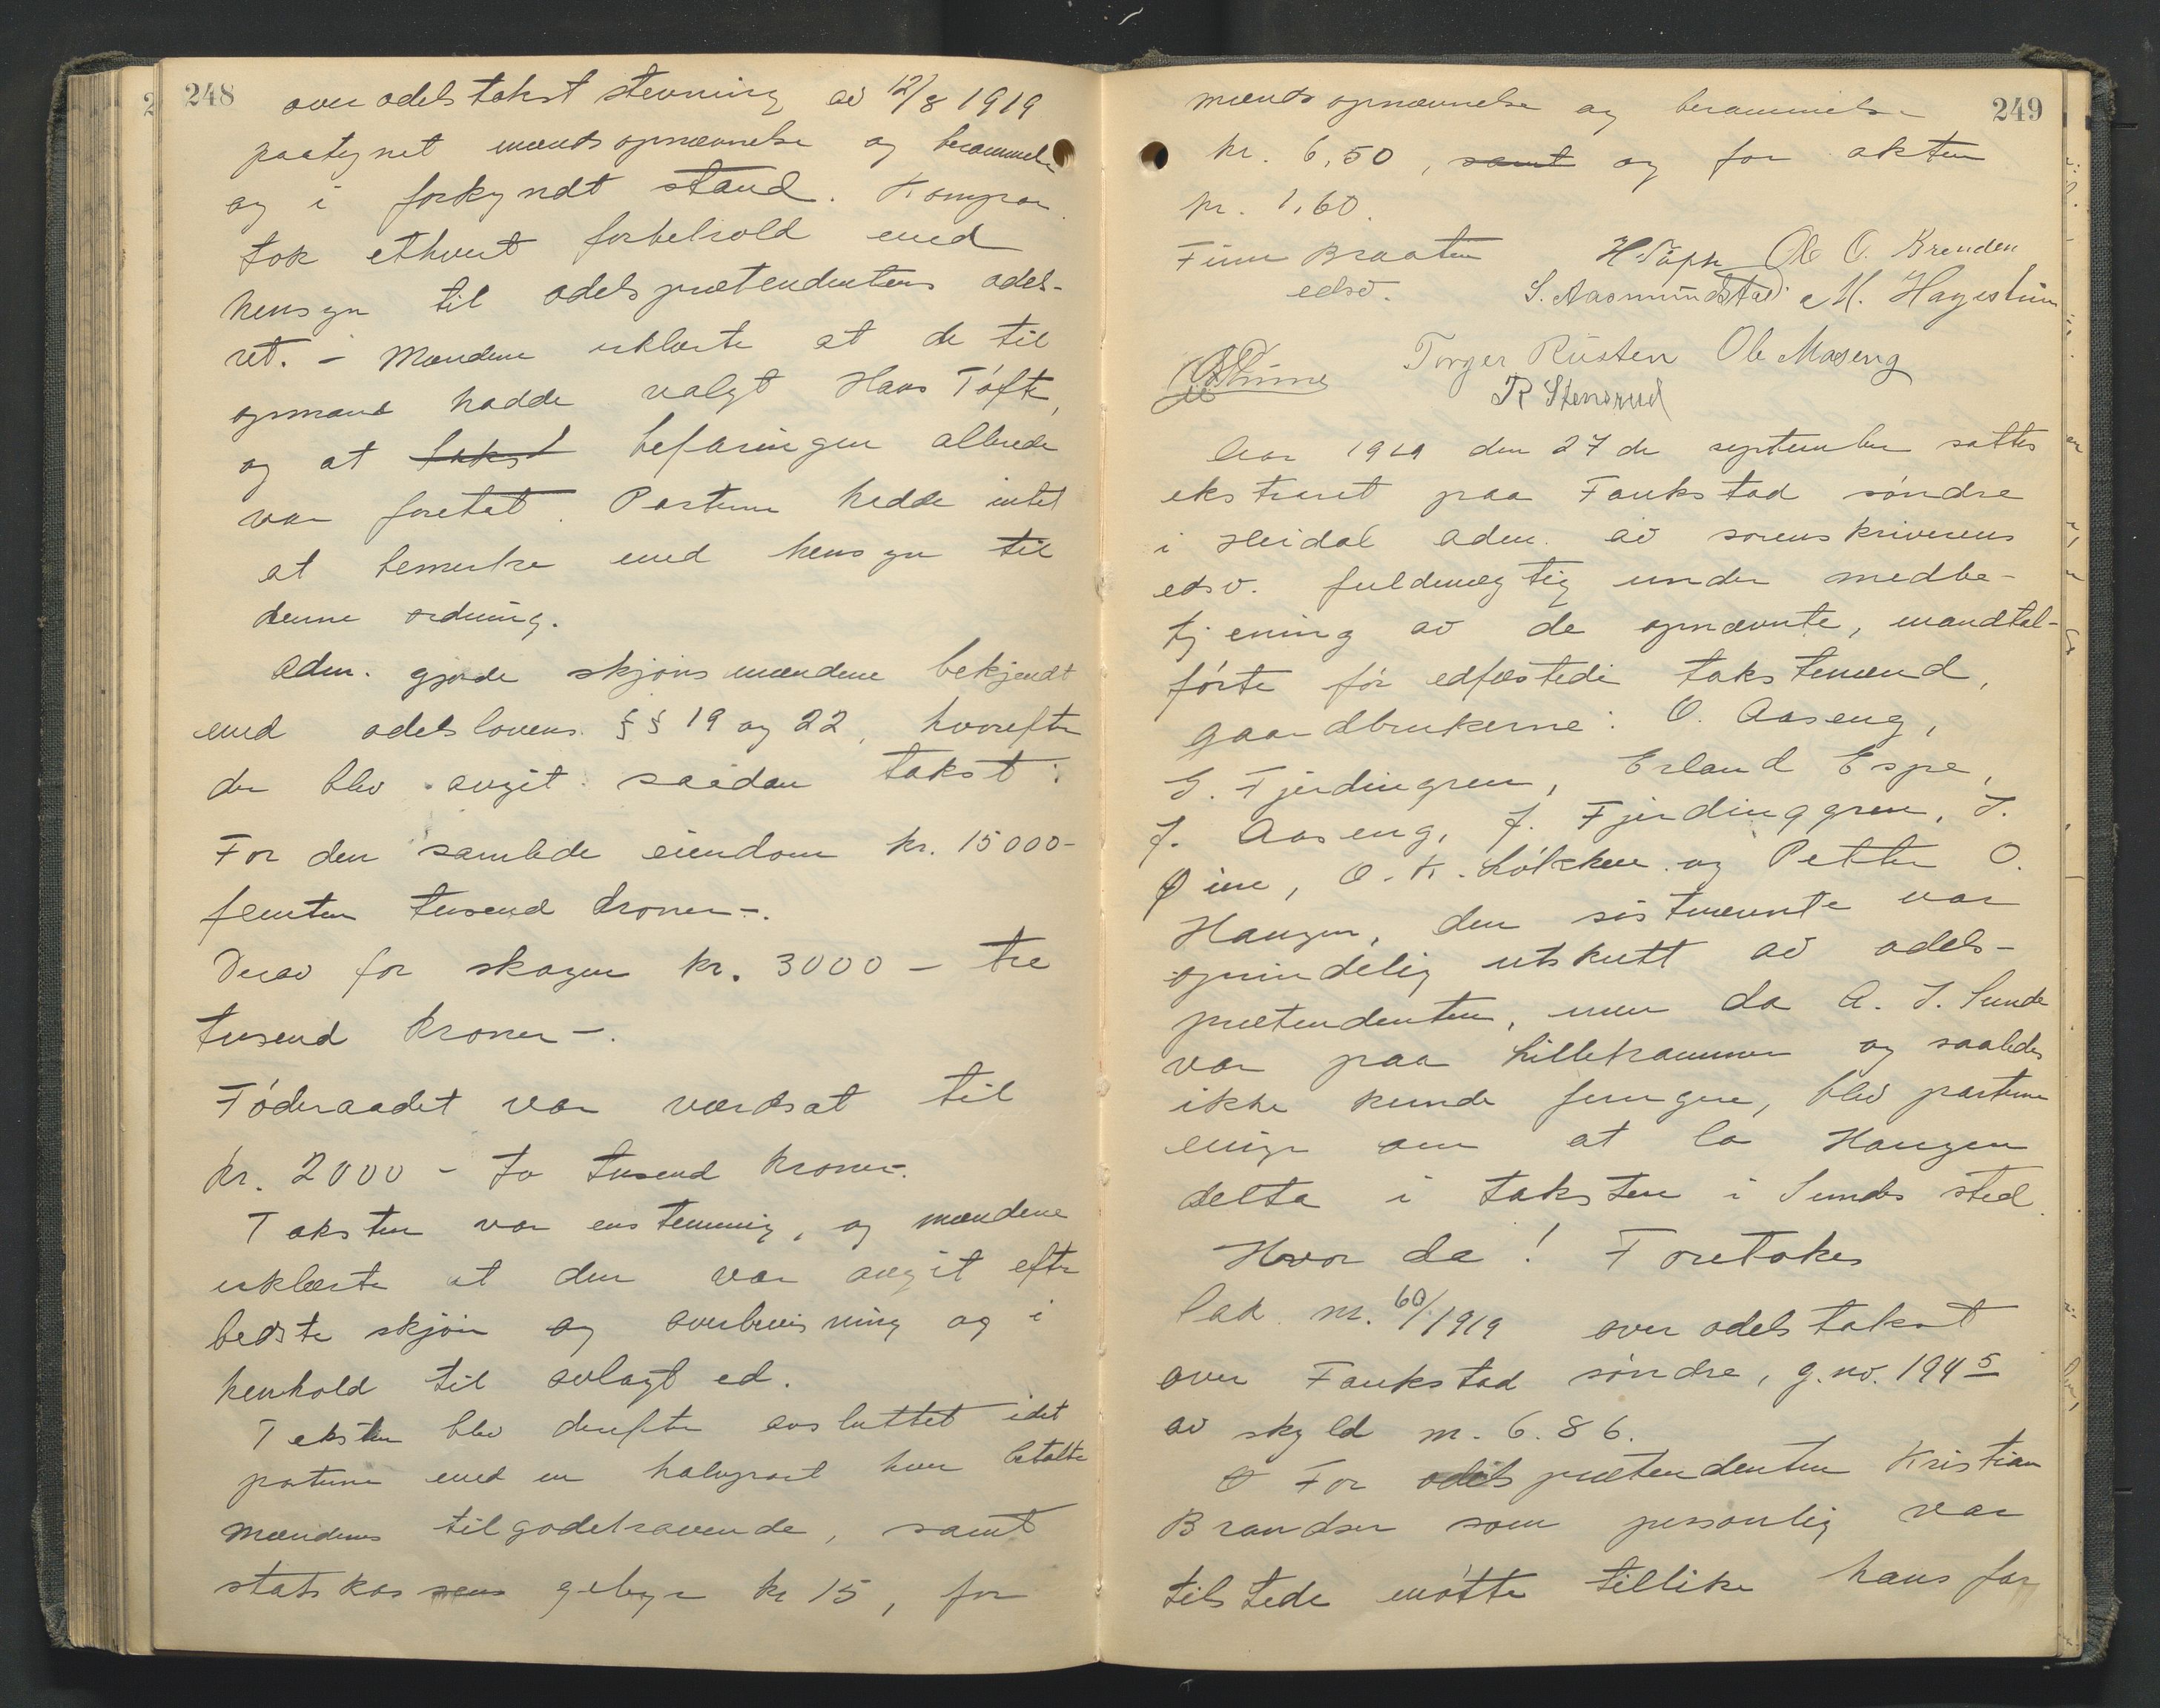 248
over odelstakst stevning av 12/8 1919
paategnet mændsopnævnelse og berammelse
og i forkyndt stand. Kompar.
tok ethvert forbehold med
hensyn til odelsprætendentens odels-
ret. - Mændene erklærte at de til
opmand hadde valgt Hans Tofte,
og at takst befaringen allerede
var foretat. Parterne hadde intet
at bemerke med hensyn til
denne ordning.
Adm. gjorde skjønsmændene bekjendt
med odelslovens §§ 19 og 22, hvorefter
der blev avgit saadan takst:
For den samlede eiendom kr. 15000-
femten tusend kroner-.
Derav for skogen kr. 3000 - tre
tusend kroner-.
Føderaadet var værdsat til
kr. 2000 - to tusend kroner-.
Taksten var enstemmig, og mændene
erklærte at den var avgit efter
bedste skjøn og overbevisning og i
henhold til avlagt ed.
Taksten blev derefter avsluttet idet
parterne med en halvpart hver betalte
mændenes tilgodehavende, samt
statskassens gebyr kr 15, for
249
mændsopnævnelse og berammelse
kr. 6,50, samt og for akten
kr. 1,60.
Finn Braaten H Tofte Ole O. Brenden
edsv. S. Aasmundstad M. Hageslum
Torger Rusten Ole Moseng
R Stensrud
Aar 1919 den 27de september sattes
ekstraret paa Faukstad søndre
i Heidal adm. av sorenskriverens
edsv. fuldmægtig under medbe-
tjening av de opnævnte, mandtal-
førte før edfæstede takstmænd,
gaardbrukerne: O. Aaseng,
G. Fjerdingren, Erland Espe,
J. Aaseng, J. Fjerdinggren, I.
Øine, O. K. Løkken og Petter O.
Haugen, den sistnævnte var
oprindelig utskutt av odels-
prætendenten, men da A. I. Sunde
var paa Lillehammer og saaledes
ikke kunde fungere, blev parterne
enige om at la Haugen
delta i taksten i Sundes sted.
Hvor da! Foretokes
Sak nr. 60/1919 over odelstakst
over Faukstad søndre, g.no. 194 5
av skyld m. 6.86.
For odelsprætendenten Kristian
Brandser som personlig var
tilstede møtte tillike hans far